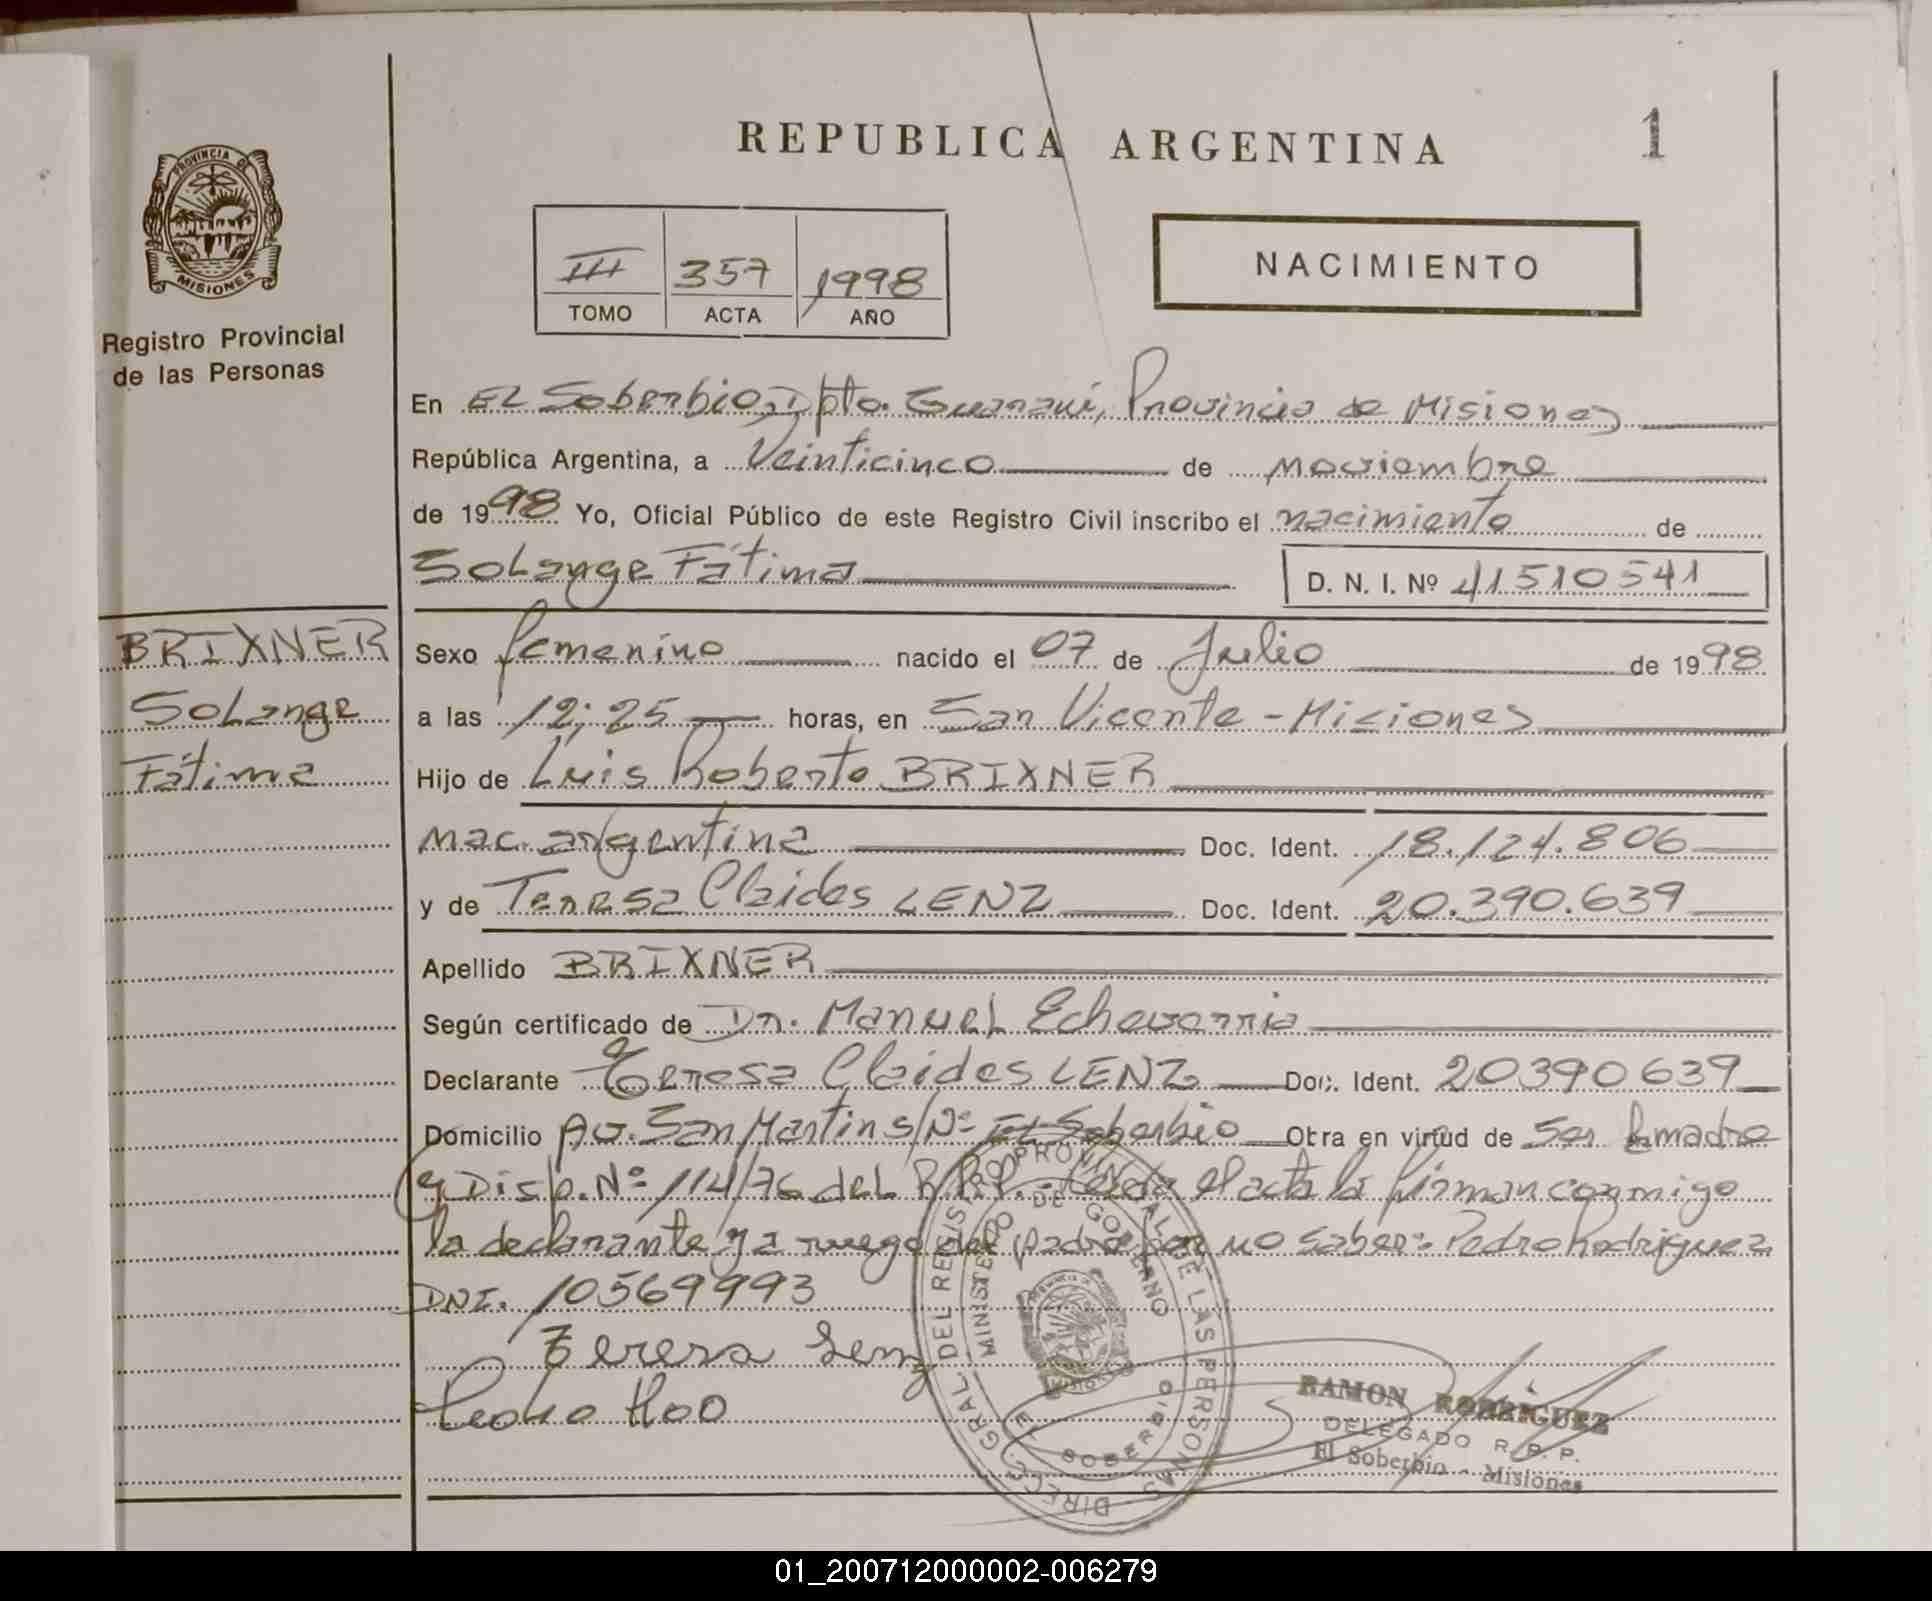 REPUBLICA ARGENTINA
1
PROVINCIA DE
MISIONES
Registro Provincial
de las Personas
III 357 1998
TOMO ACTA AÑO
NACIMIENTO
En EL Soberbio, Dpto. Guaraní, Provincia de Misiones
República Argentina, a Veinticinco de noviembre
de 1998 Yo, Oficial Público de este Registro Civil inscribo el nacimiento de
SoLange Fátima D. N. I. Nº 41510541
BRIXNER
SoLange
Fátima
Sexo femenino nacido el 07 de Julio de 1998
a las 12;25 horas, en San Vicente - Misiones
Hijo de Luis Roberto BRIXNER
nac. argentina Doc. Ident. 18.124.806
y de Teresa Claides LENZ Doc. Ident. 20.390.639
Apellido BRIXNER
Según certificado de Dr. Manuel Echeverria
Declarante Teresa Claides LENZ Doc. Ident. 20390639
Domicilio Av. San Martin S/Nº EL Soberbio Otra en virtud de Ser la madre
y Disp. Nº 114/76 del R.P.P. - Leída el acta la firman conmigo
la declarante y a ruego del padre por no saber: Pedro Rodriguez
DNI. 10569993
Teresa Lenz
DIREC. GRAL. DEL REGISTRO PROVINCIAL DE LAS PERSONAS
MINISTERIO DE GOBIERNO
EL SOBERBIO
RAMON RODRIGUEZ
DELEGADO R. P. P.
El Soberbio - Misiones
01_200712000002-006279